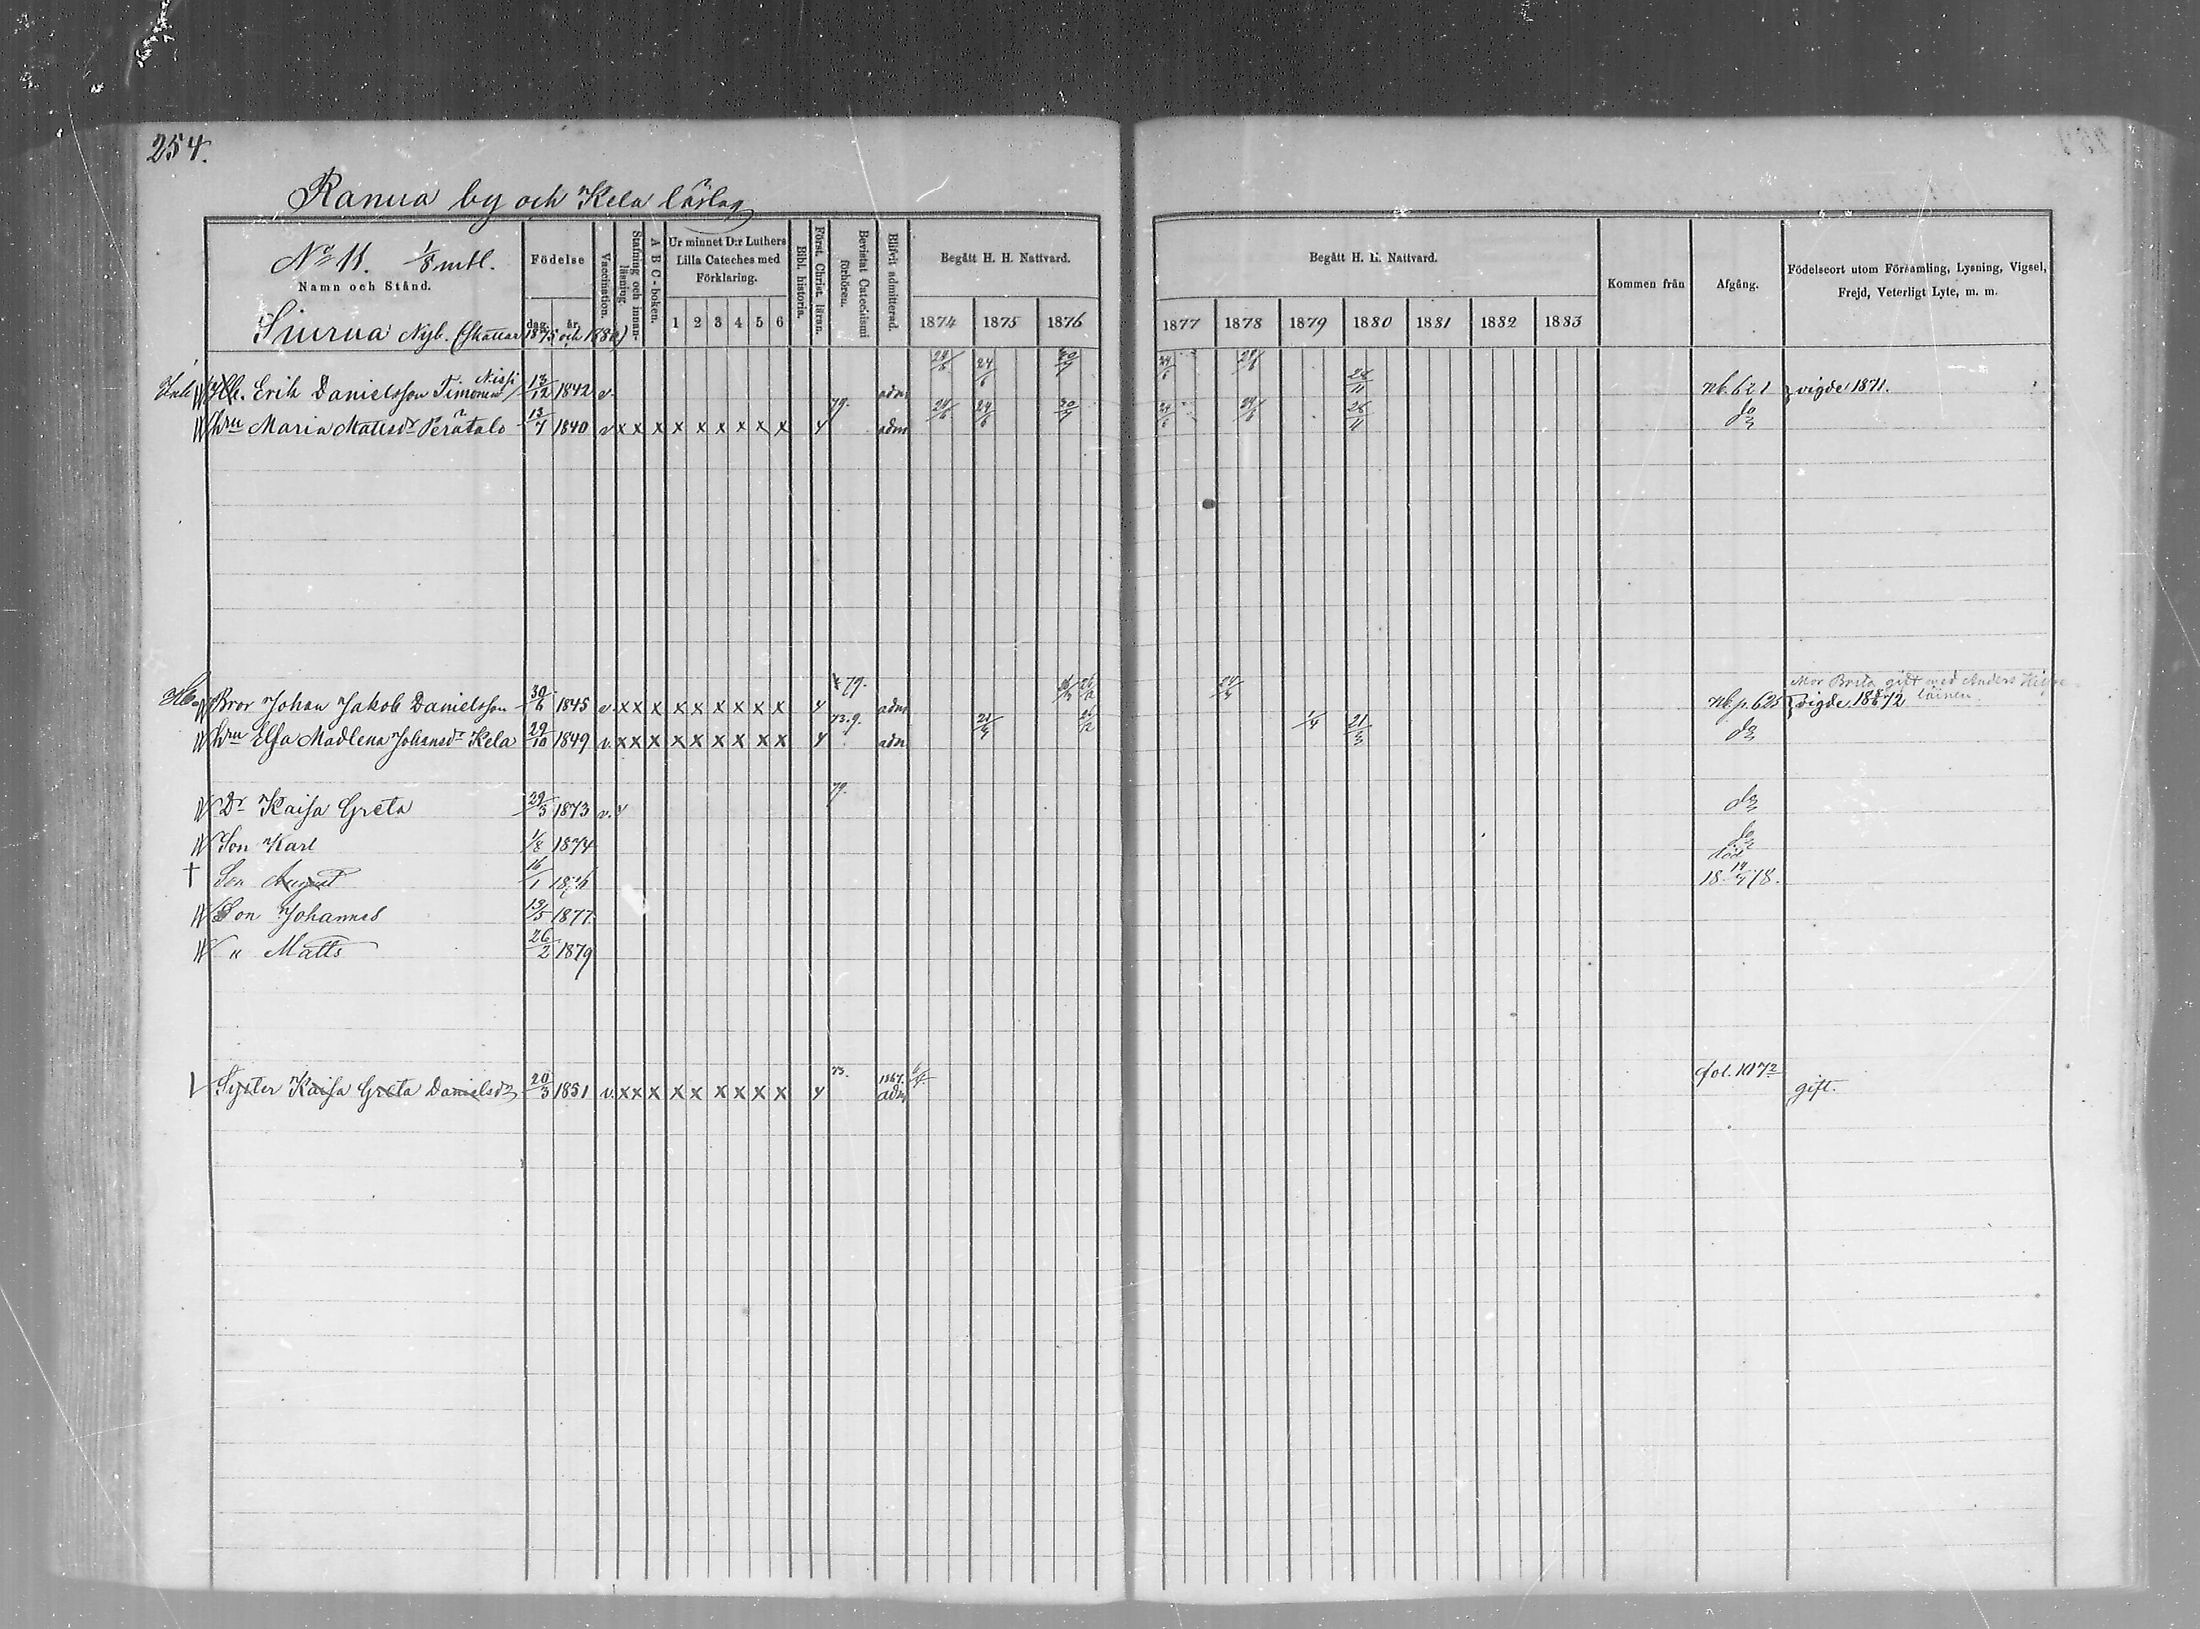 254.
Ranua by och Kela läslag
No 11. 1/8 mtl.
Namn och Stånd.
Födelse
dag. år.
Vaccination.
Stafning och innanläsning.
A B C-boken.
Ur minnet D:r Luthers Lilla Cateches med Förklaring.
1 2 3 4 5 6
Bibl. historia.
Först. Christ. läran.
Bevistat Catechismi förhören.
Blifvit admitterad.
Begått H. H. Nattvard.
1874 1875 1876
Begått H. H. Nattvard.
1877 1878 1879 1880 1881 1882 1883
Kommen från
Afgång.
Födelseort utom Församling, Lysning, Vigsel, Frejd, Veterligt Lyte, m. m.
Siurua Nyb. (Skattar 1875 och 188)
Nissi
Erik Danielsson Timonen 13/12 1842 v. adm 24/6 24/6 24/6 24/6 26/11 nb. 621 vigde 1871.
Hru Maria Mattsdr Perätalo 13/7 1840 v x x x x x x x x x y 79. adm 24/6 24/6 24/6 24/6 26/11 do
Mor Brita gift med Anders
Bror Johan Jakob Danielsson 30/6 1845 v x x x x x x x x x y 79. adm nb. p. 625 vigde 1872
Hru Elsa Madlena Johansdr Kela 29/10 1849 v. x x x x x x x x x y 73.9. adm 21/3 do
Dr Kaisa Greta 29/3 1873 v. y 79. do
Son Karl 1/8 1874 do
† Son August 16/1 1876 död 18 78.
Son Johannes 13/5 1877. do
" Matts 26/2 1879
Syster Kaisa Greta Danielsdr 20/3 1851 v. x x x x x x x x x y 73. 1867. adm fol. 1072 gift.